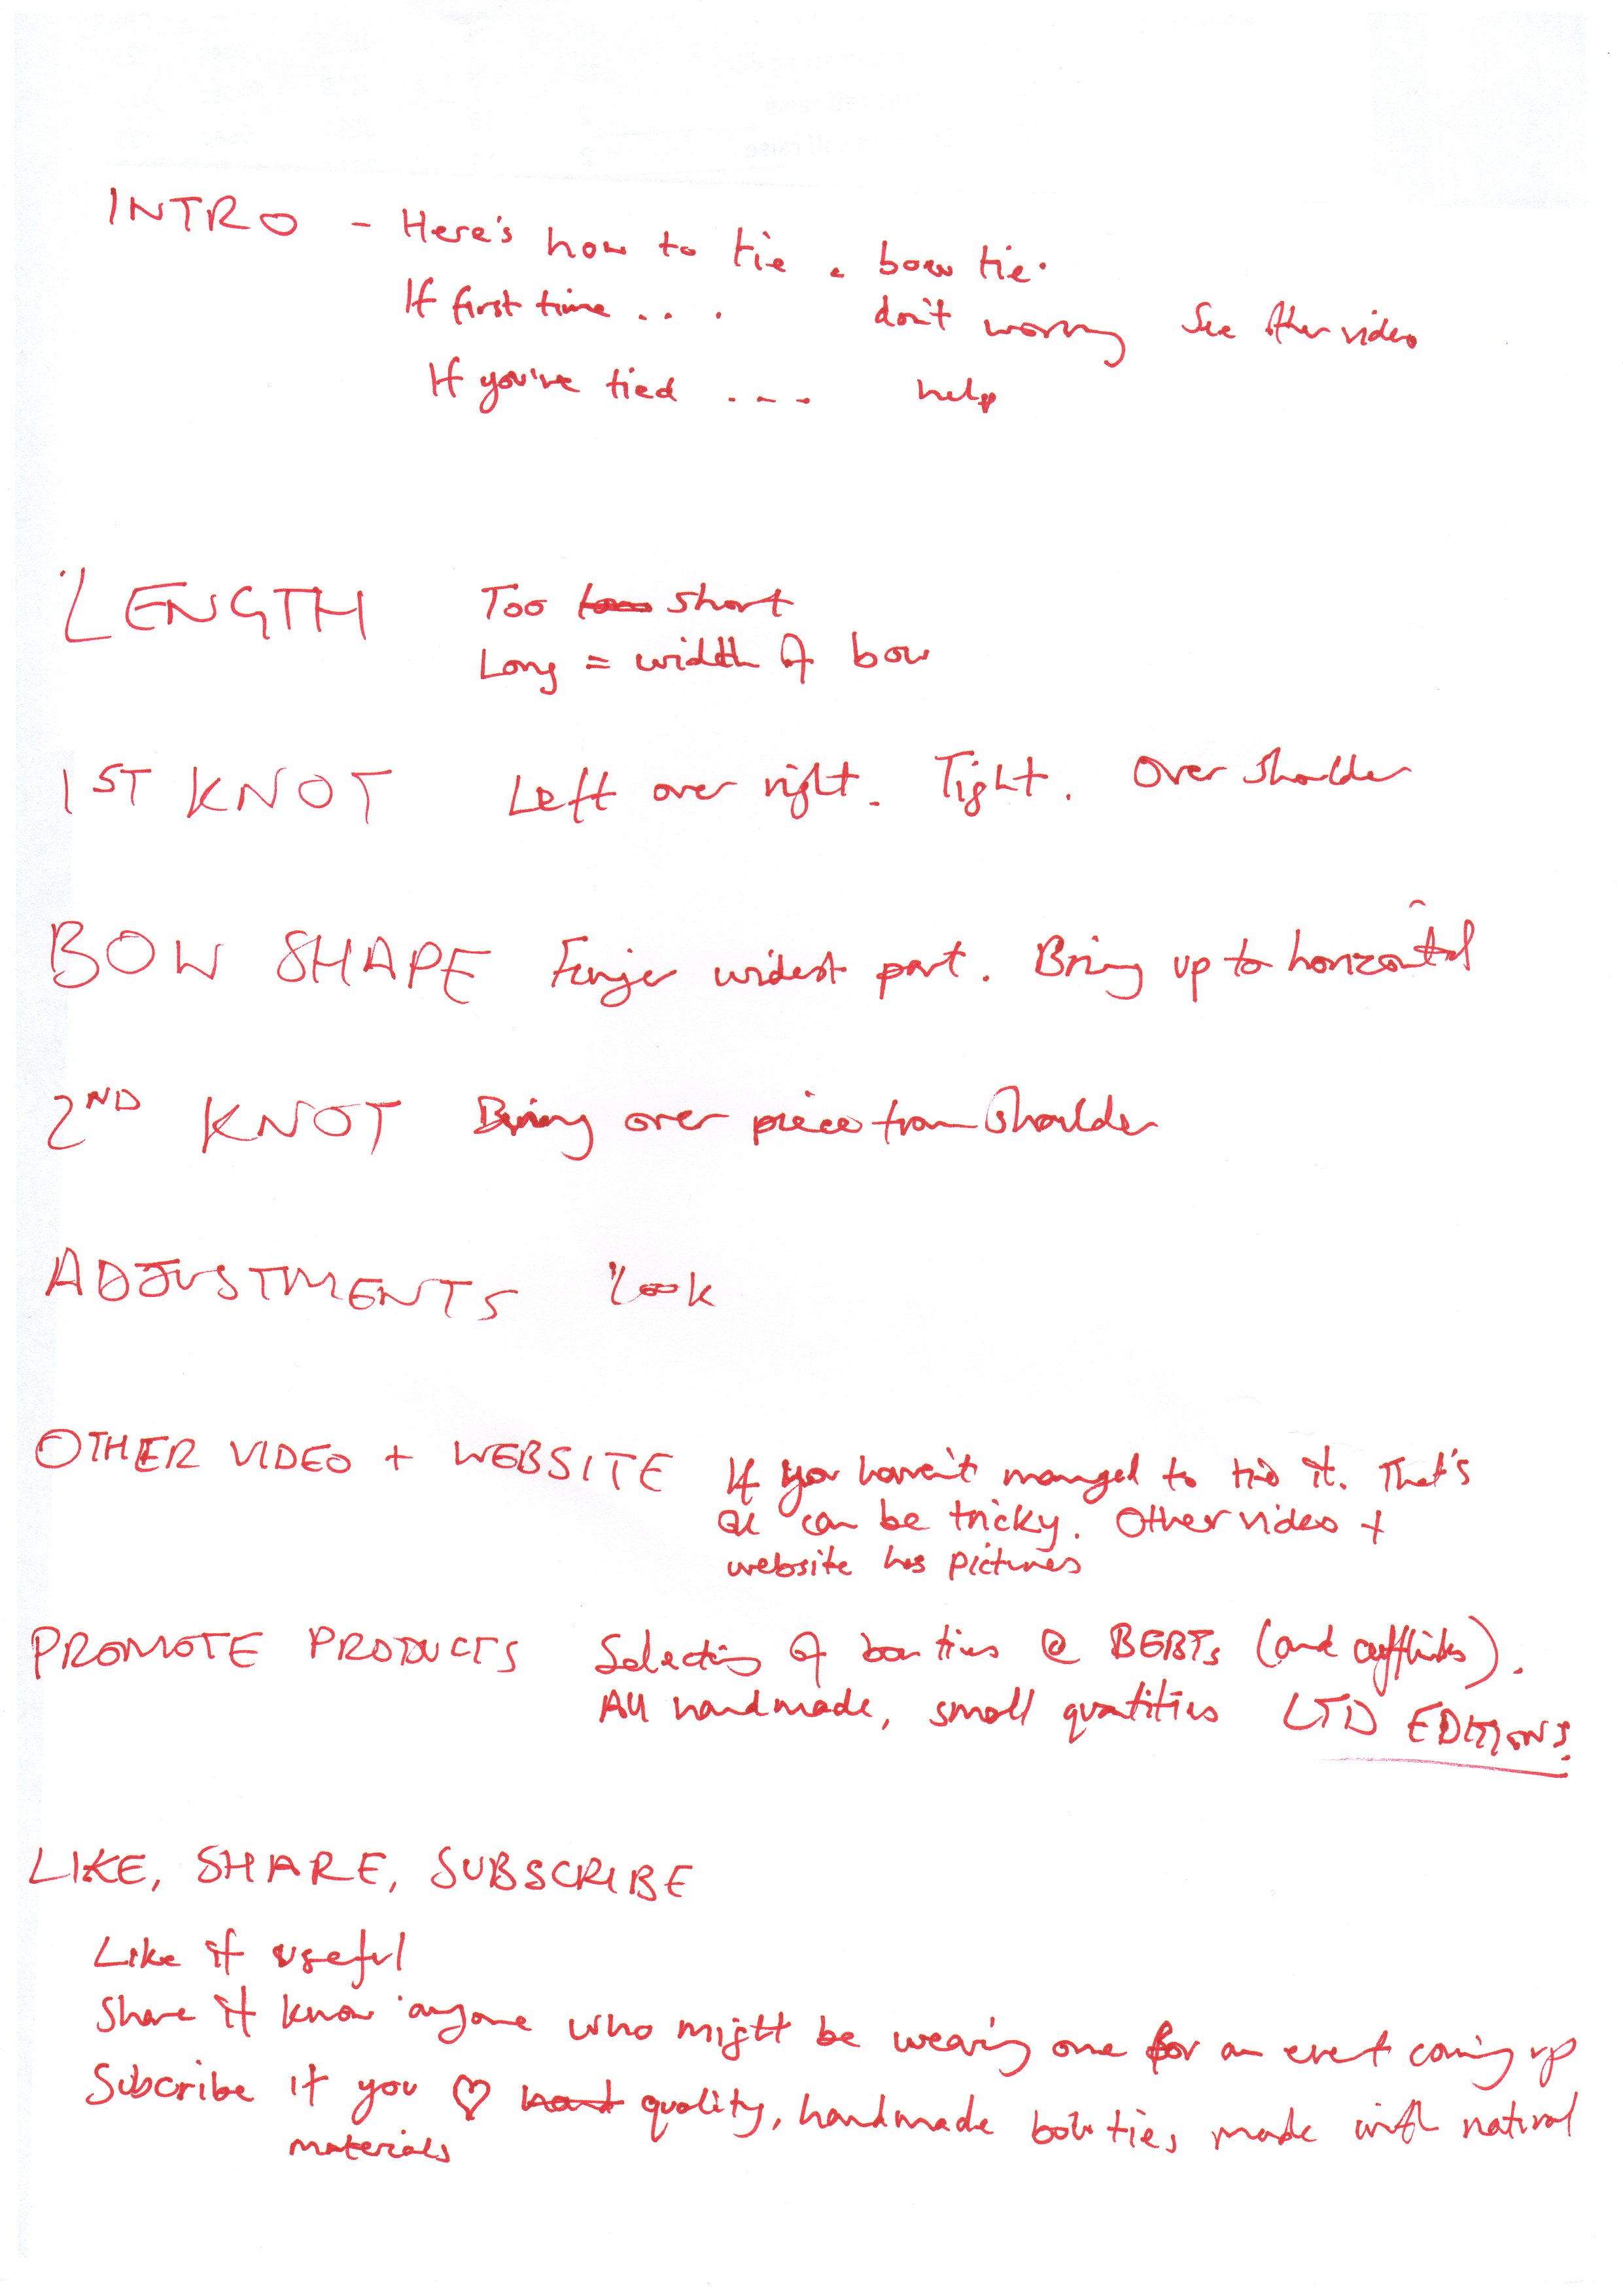 INTRO - Here's how to tie a bow tie.
If first time . . . don't worry See other video
If you've tied . . . . help
LENGTH Too short
Long = width of bow
1ST KNOT Left over right. Tight. Over shoulder
BOW SHAPE Finger widest part. Bring up to horizontal
2ND KNOT Bring over piece from shoulder
ADJUSTMENTS Look
OTHER VIDEO + WEBSITE If you haven't manged to tie it. That's
ok can be tricky. Other video +
website has pictures
PROMOTE PRODUCTS Selection of bow ties @ BEBTs (and cufflinks).
All handmade, small quatities LTD EDITIONS.
LIKE, SHARE, SUBSCRIBE
Like if useful
Share if know anyone who might be wearing one for an event coming up
Subcribe if you ♡ quality, handmade bow ties, made with natural
materials